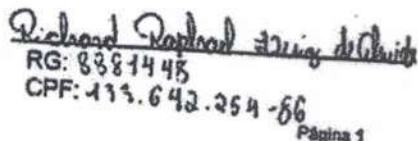 Richard Raphael de Almeida
RG: 8381448
CPF: 133.642.254-86
Página 1